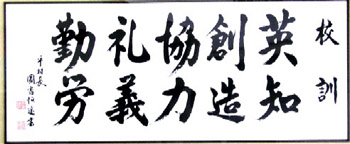 校訓
英知
創造
協力
礼義
勤労